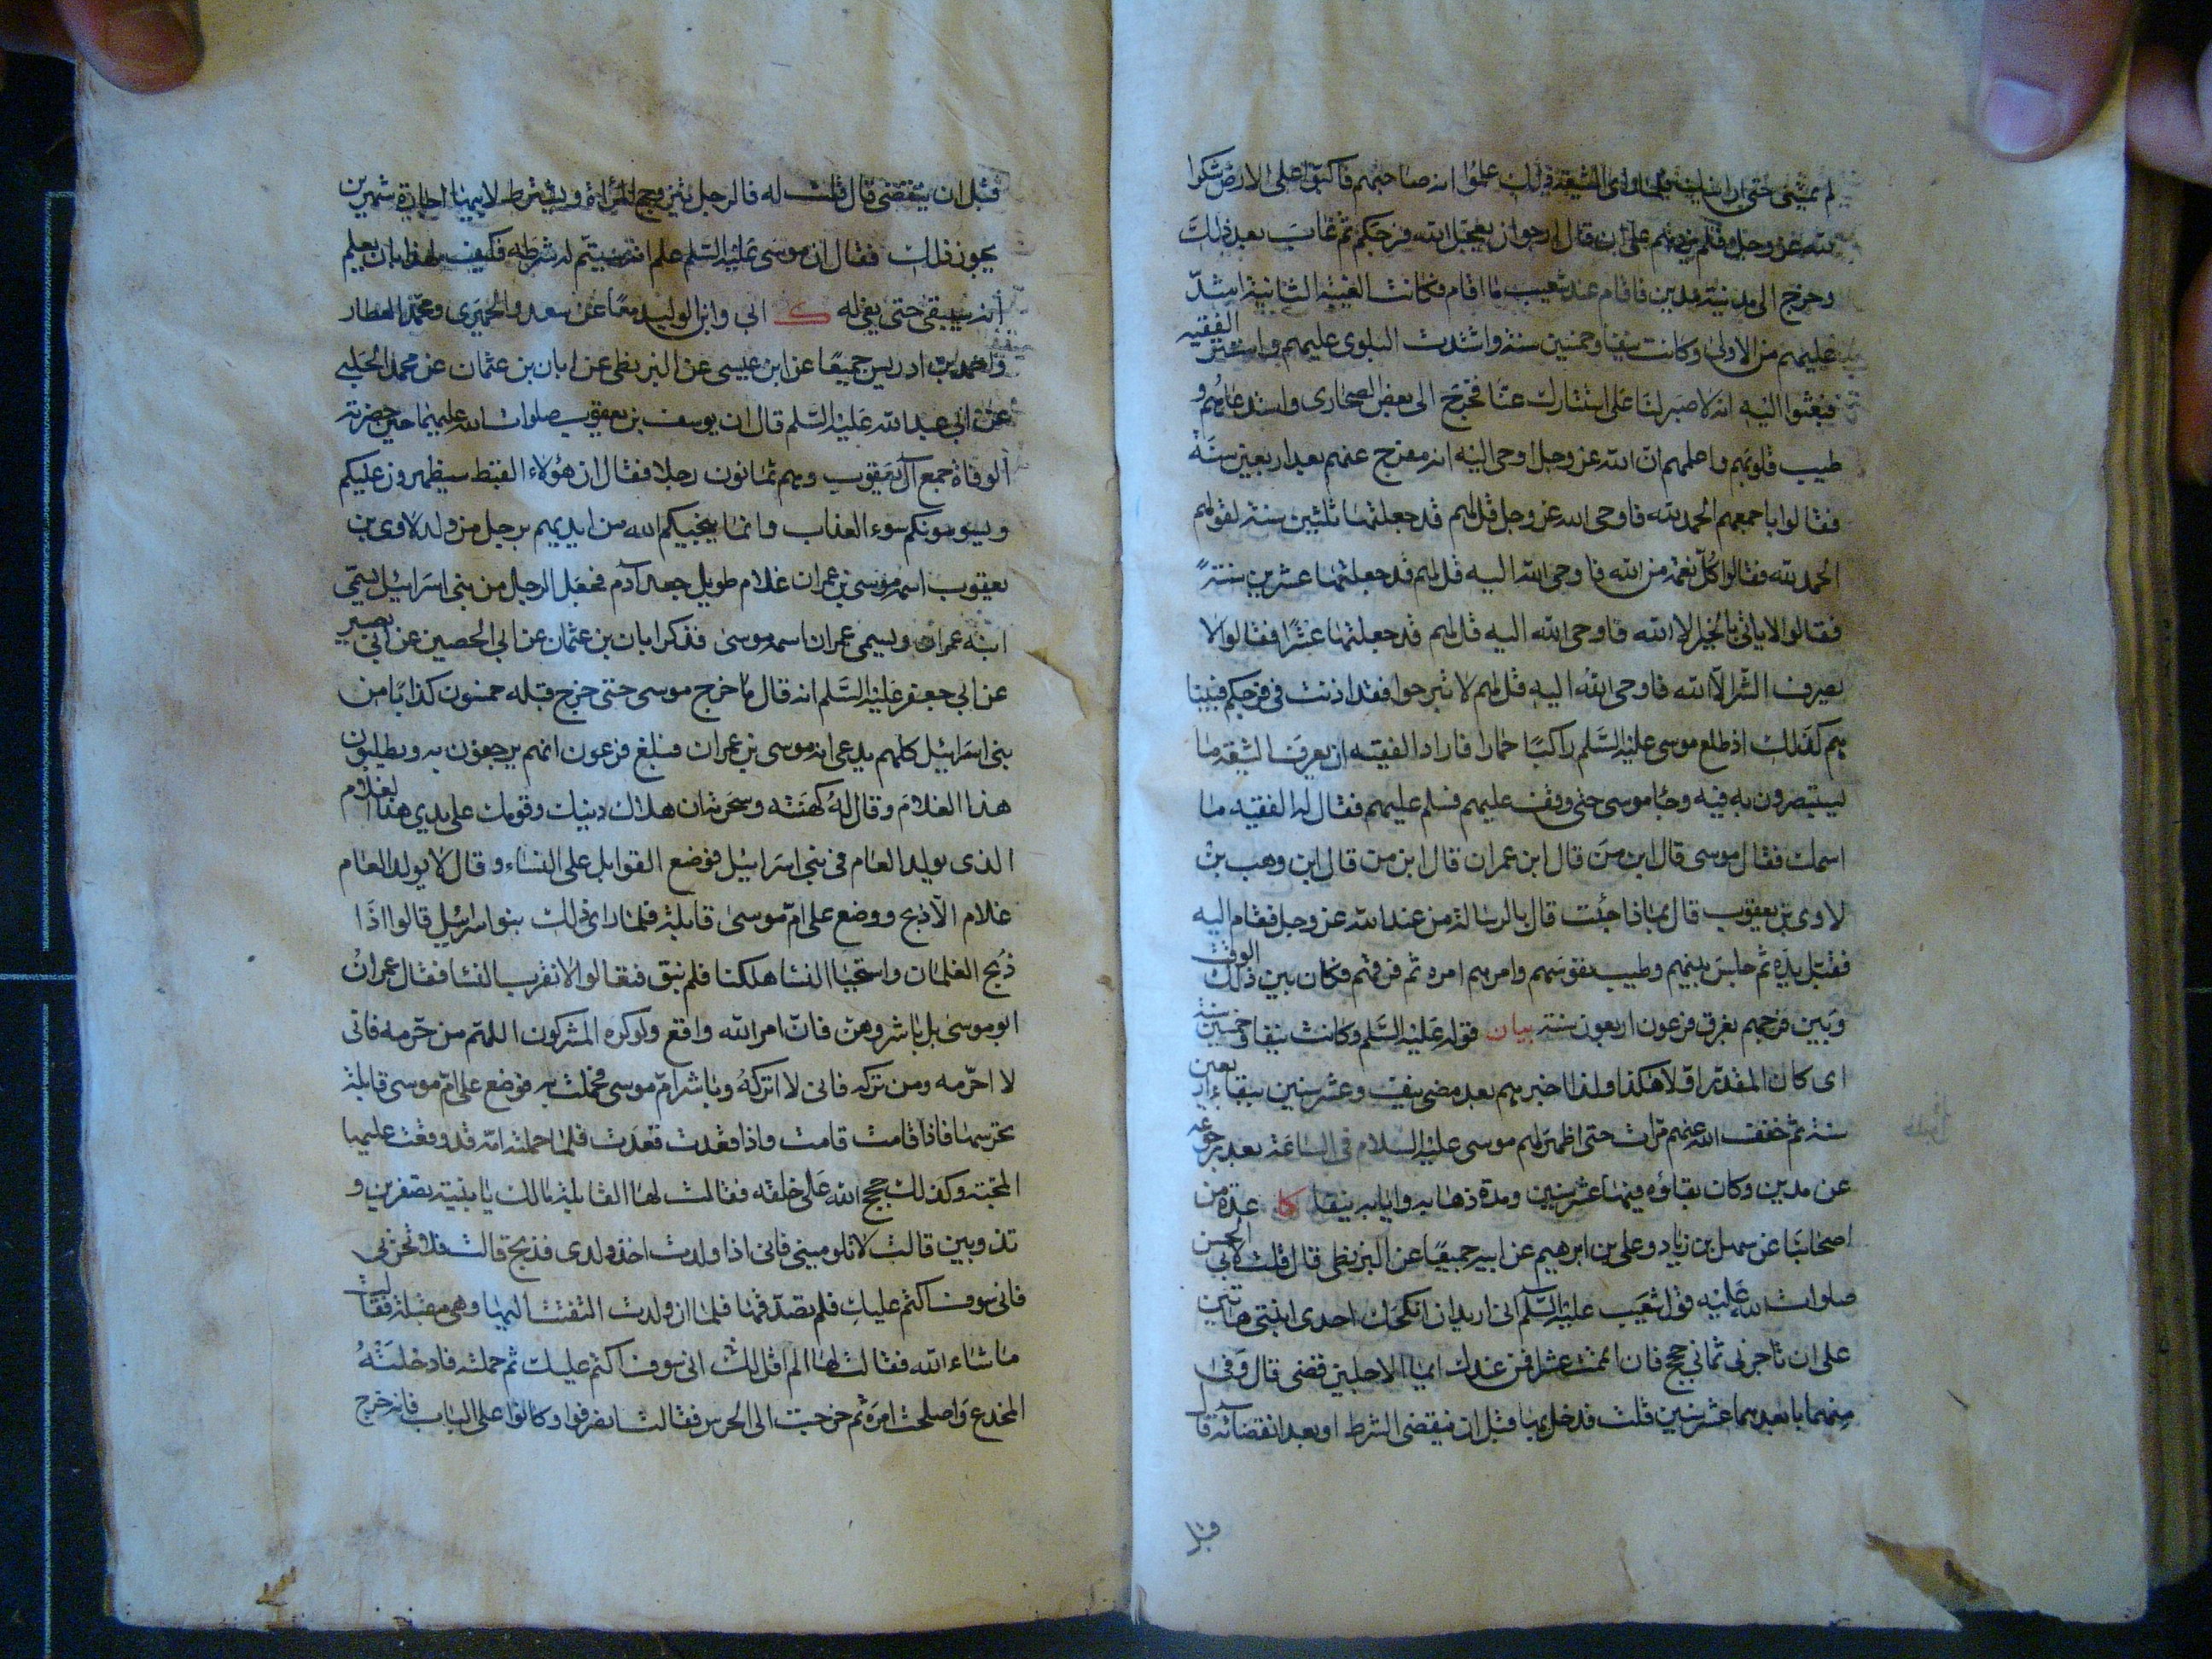 لم يمشى حتى
لله عز وجل فلم يزدهم على ان قال ارجو ان يعجل الله فرجكم ثم غاب بعد ذلك
وخرج الى مدينة مدين فاقام عند شعيب ما اقام فكانت الغيبة الثانية اشدّ
عليهم من الاولى وكانت نيفا وخمسين سنة واشتدت البلوى عليهم واستتر الفقيه
فبعثوا اليه انه لا صبر لنا على استتارك عنّا فخرج الى بعض الصحارى واستدعاهم و
طيب قلوبهم واعلمهم انّ الله عز وجل اوحى اليه انه مفرج عنهم بعد اربعين سنة
فقالوا باجمعهم الحمد لله فاوحى الله عز وجل قل لهم قد جعلتها ثلثين سنة لقولهم
الحمد لله فقالوا كل نعمة من الله فاوحى الله اليه قل لهم قد جعلتها عشرين سنة
فقالوا لا ياتى بالخير الا الله فاوحى الله اليه قل لهم قد جعلتها عشرا فقالوا لا
يصرف الشر الا الله فاوحى الله اليه قل لهم لا تبرحوا فقد اذنت فى فرجكم فبينا
هم كذلك اذ طلع موسى عليه السلم راكبا حمارا فاراد الفقيه ان يعرف الشيعة ما
يستبصرون به فيه وجا موسى حتى وقف عليهم فسلم عليهم فقال له الفقيه ما
اسمك فقال موسى قال ابن من قال ابن عمران قال ابن من قال ابن وهب بن
لاوى بن يعقوب قال بماذا جئت قال بالرسالة من عند الله عز وجل فقام اليه
فقبّل يده ثم جلس بينهم وطيب نفوسهم وامرهم امره ثم فرقهم فكان بين ذلك الوقت
وبين فرجهم بغرق فرعون اربعون سنة بيان قوله عليه السلم وكانت نيفا وخمسين سنة
اى كان المقدّر اوّلا هكذا ولذا اخبرهم بعد مضى نيف وعشر سنين ببقاء اربعين
سنة ثم خفف الله عنهم مرّات حتى اظهر لهم موسى عليه السلام فى الساعة بعد رجوعه
عن مدين وكان بقاؤه فيها عشر سنين ومدة ذهابه وايابه نيفا كا عدة من
اصحابنا عن سهل بن زياد وعلى بن ابرهيم عن ابيه جميعا عن البزنطى قال قلت لابى الحسن
صلوات الله عليه قول شعيب عليه السلم انى اريد ان انكحك احدى ابنتى هاتين
على ان تاجرنى ثمانى حجج فان اتممت عشرا فمن عندك ايّما الاجلين قضى قال وفى
منهما بابعدهما عشر سنين قلت فدخل بها قبل ان ينقضى الشرط او بعد انقضائه قال
قبل
قبل ان ينقضى قال قلت له فالرجل يتزوج المراة ويشترط لابيها اجارة شهرين
يجوز ذلك فقال ان موسى عليه السلم علم انه سيتم له شرطه فكيف لهذا بان يعلم
انه سيبقى حتى يفى له ك ابى وابن الوليد معا عن سعد والحميرى ومحمد العطار
واحمد بن ادريس جميعا عن ابن عيسى عن البزنطى عن ابان بن عثمان عن محمد الحلبى
عن ابى عبد الله عليه السلم قال ان يوسف بن يعقوب صلوات الله عليهما حين حضرته
الوفاة جمع آل يعقوب وهم ثمانون رجلا فقال ان هؤلاء القبط سيظهرون عليكم
ويسومونكم سوء العذاب وانما ينجيكم الله من ايديهم برجل من ولد لاوى بن
يعقوب اسمه موسى بن عمران غلام طويل جعد آدم فجعل الرجل من بنى اسرائيل يسمّى
ابنه عمران ويسمى عمران اسمه موسى فذكر ابان بن عثمان عن ابى الحصين عن ابى بصير
عن ابى جعفر عليه السلم انه قال ما خرج موسى حتى خرج قبله خمسون كذابا من
بنى اسرائيل كلهم يدعى انه موسى بن عمران فبلغ فرعون انهم يرجفون به ويطلبون
هذا الغلام وقال له كهنته وسحرته ان هلاك دينك وقومك على يدى هذا الغلام
الذى يولد العام فى بنى اسرائيل فوضع القوابل على النساء وقال لا يولد العام
غلام الّا ذبح ووضع على امّ موسى قابلة فلما راى ذلك بنو اسرائيل قالوا اذا
ذبح الغلمان واستحيا النسا هلكنا فلم نبق فتعالوا لا نقرب النسا فقال عمران
ابو موسى بل باشروهن فانّ امر الله واقع ولو كره المشركون اللهم من حرّمه فانى
لا احرّمه ومن تركه فانى لا اتركه وباشر امّ موسى فحملت به فوضع على امّ موسى قابلة
تحرسها فاذا قامت قامت واذا قعدت قعدت فلما حملته امّه قد وقعت عليها
المحبّة وكذلك حجج الله على خلقه فقالت لها القابلة مالك يا بنية تصفرين و
تذوبين قالت لا تلومينى فانى اذا ولدت اخذ ولدى فذبح قالت فلا تحزنى
فانى سوف اكتم عليك فلم تصدّقها فلما ان ولدت التفتت اليها وهى مقبلة فقالت
ما شاء الله فقالت لها الم اقل لك انى سوف اكتم عليك ثم حملته فادخلته
المخدع واصلحت امره ثم خرجت الى الحرس فقالت انصرفوا وكانوا على الباب فانه خرج